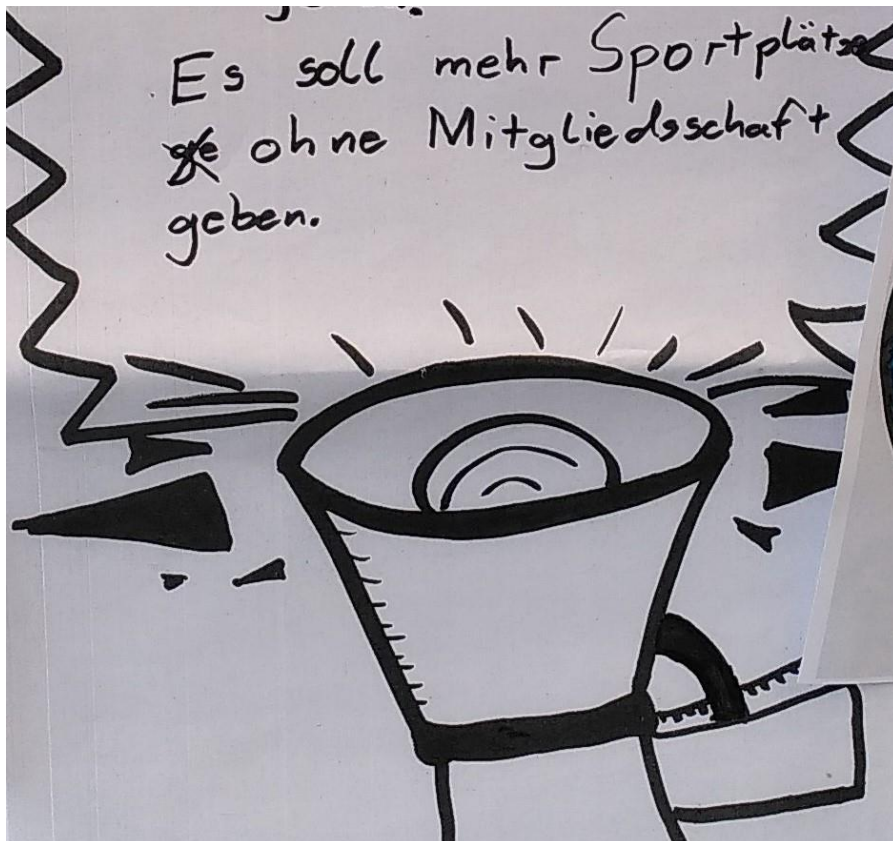 Es soll mehr Sportplätze
ohne Mitgliedsschaft
geben.